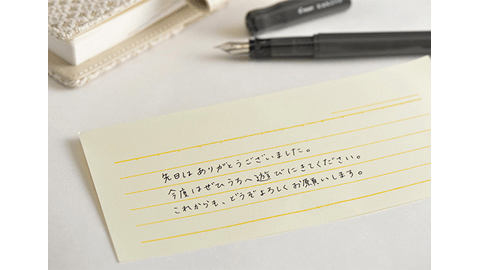 先日はありがとうございました。
今度はぜひうちへ遊びにきてください。
これからも、どうぞよろしくお願いします。